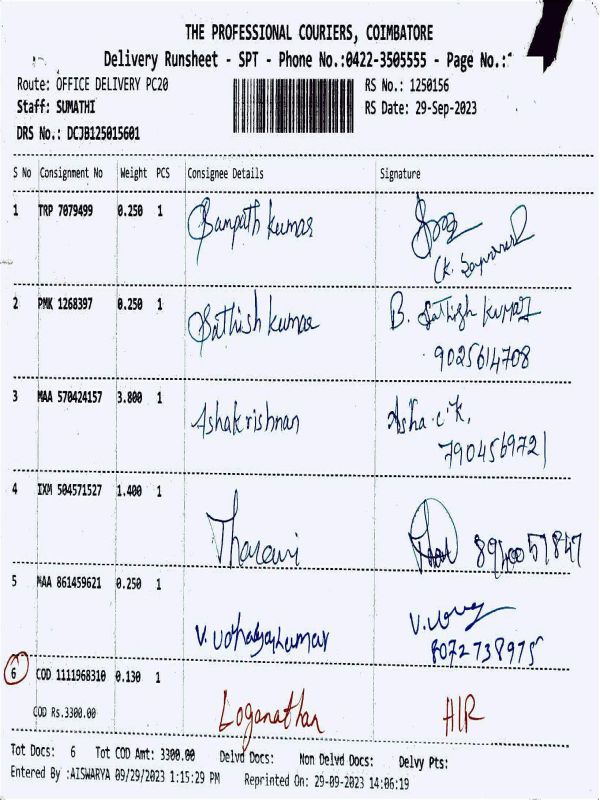 THE PROFESSIONAL COURIERS, COIMBATORE
Delivery Runsheet - SPT - Phone No.:0422-3505555 - Page No.:
Route: OFFICE DELIVERY PC20 RS No.: 1250156
Staff: SUMATHI RS Date: 29-Sep-2023
DRS No.: DCJB125015601
S No Consignment No Weight PCS Consignee Details Signature
1 TRP 7079499 0.250 1 Sampath kumar
2 PMK 1268397 0.250 1 Sathish kumar B. Sathish kumar
9025614708
3 MAA 570424157 3.800 1 Ashakrishnan Asha.c.k,
7904569721
4 IXM 504571527 1.400 1 Tharani 8940057847
5 MAA 861459621 0.250 1 V. Udhayakumar
8072738975
6 COD 1111968310 0.130 1 Loganathan AIR
COD Rs.3300.00
Tot Docs: 6 Tot COD Amt: 3300.00 Delvd Docs: Non Delvd Docs: Delvy Pts:
Entered By :AISWARYA 09/29/2023 1:15:29 PM Reprinted On: 29-09-2023 14:06:19